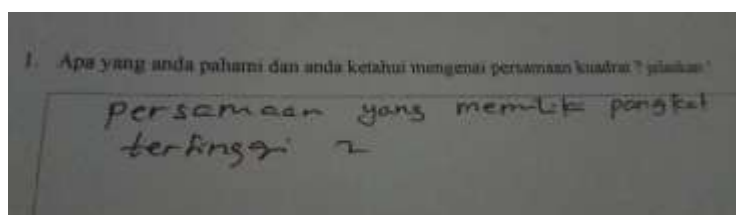 1. Apa yang anda pahami dan anda ketahui mengenai persamaan kuadrat ? jelaskan !
persamaan yang memilik pangkat
tertinggi 2